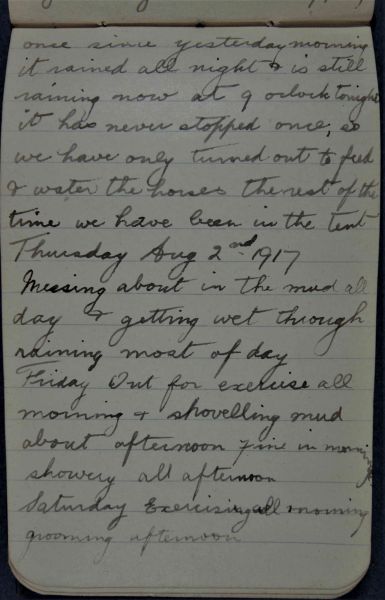 once since yesterday morning
it rained all night & is still
raining now at 9 oclock tonight
it has never stopped once, so
we have only turned out to feed
& water the horses the rest of the
time we have been in the tent
Thursday Aug 2nd 1917
Messing about in the mud all
day & getting wet through
raining most of day
Friday Out for exercise all
morning & shovelling mud
about afternoon fine in morning
showery all afternoon
Saturday Exercising all morning
grooming afternoon